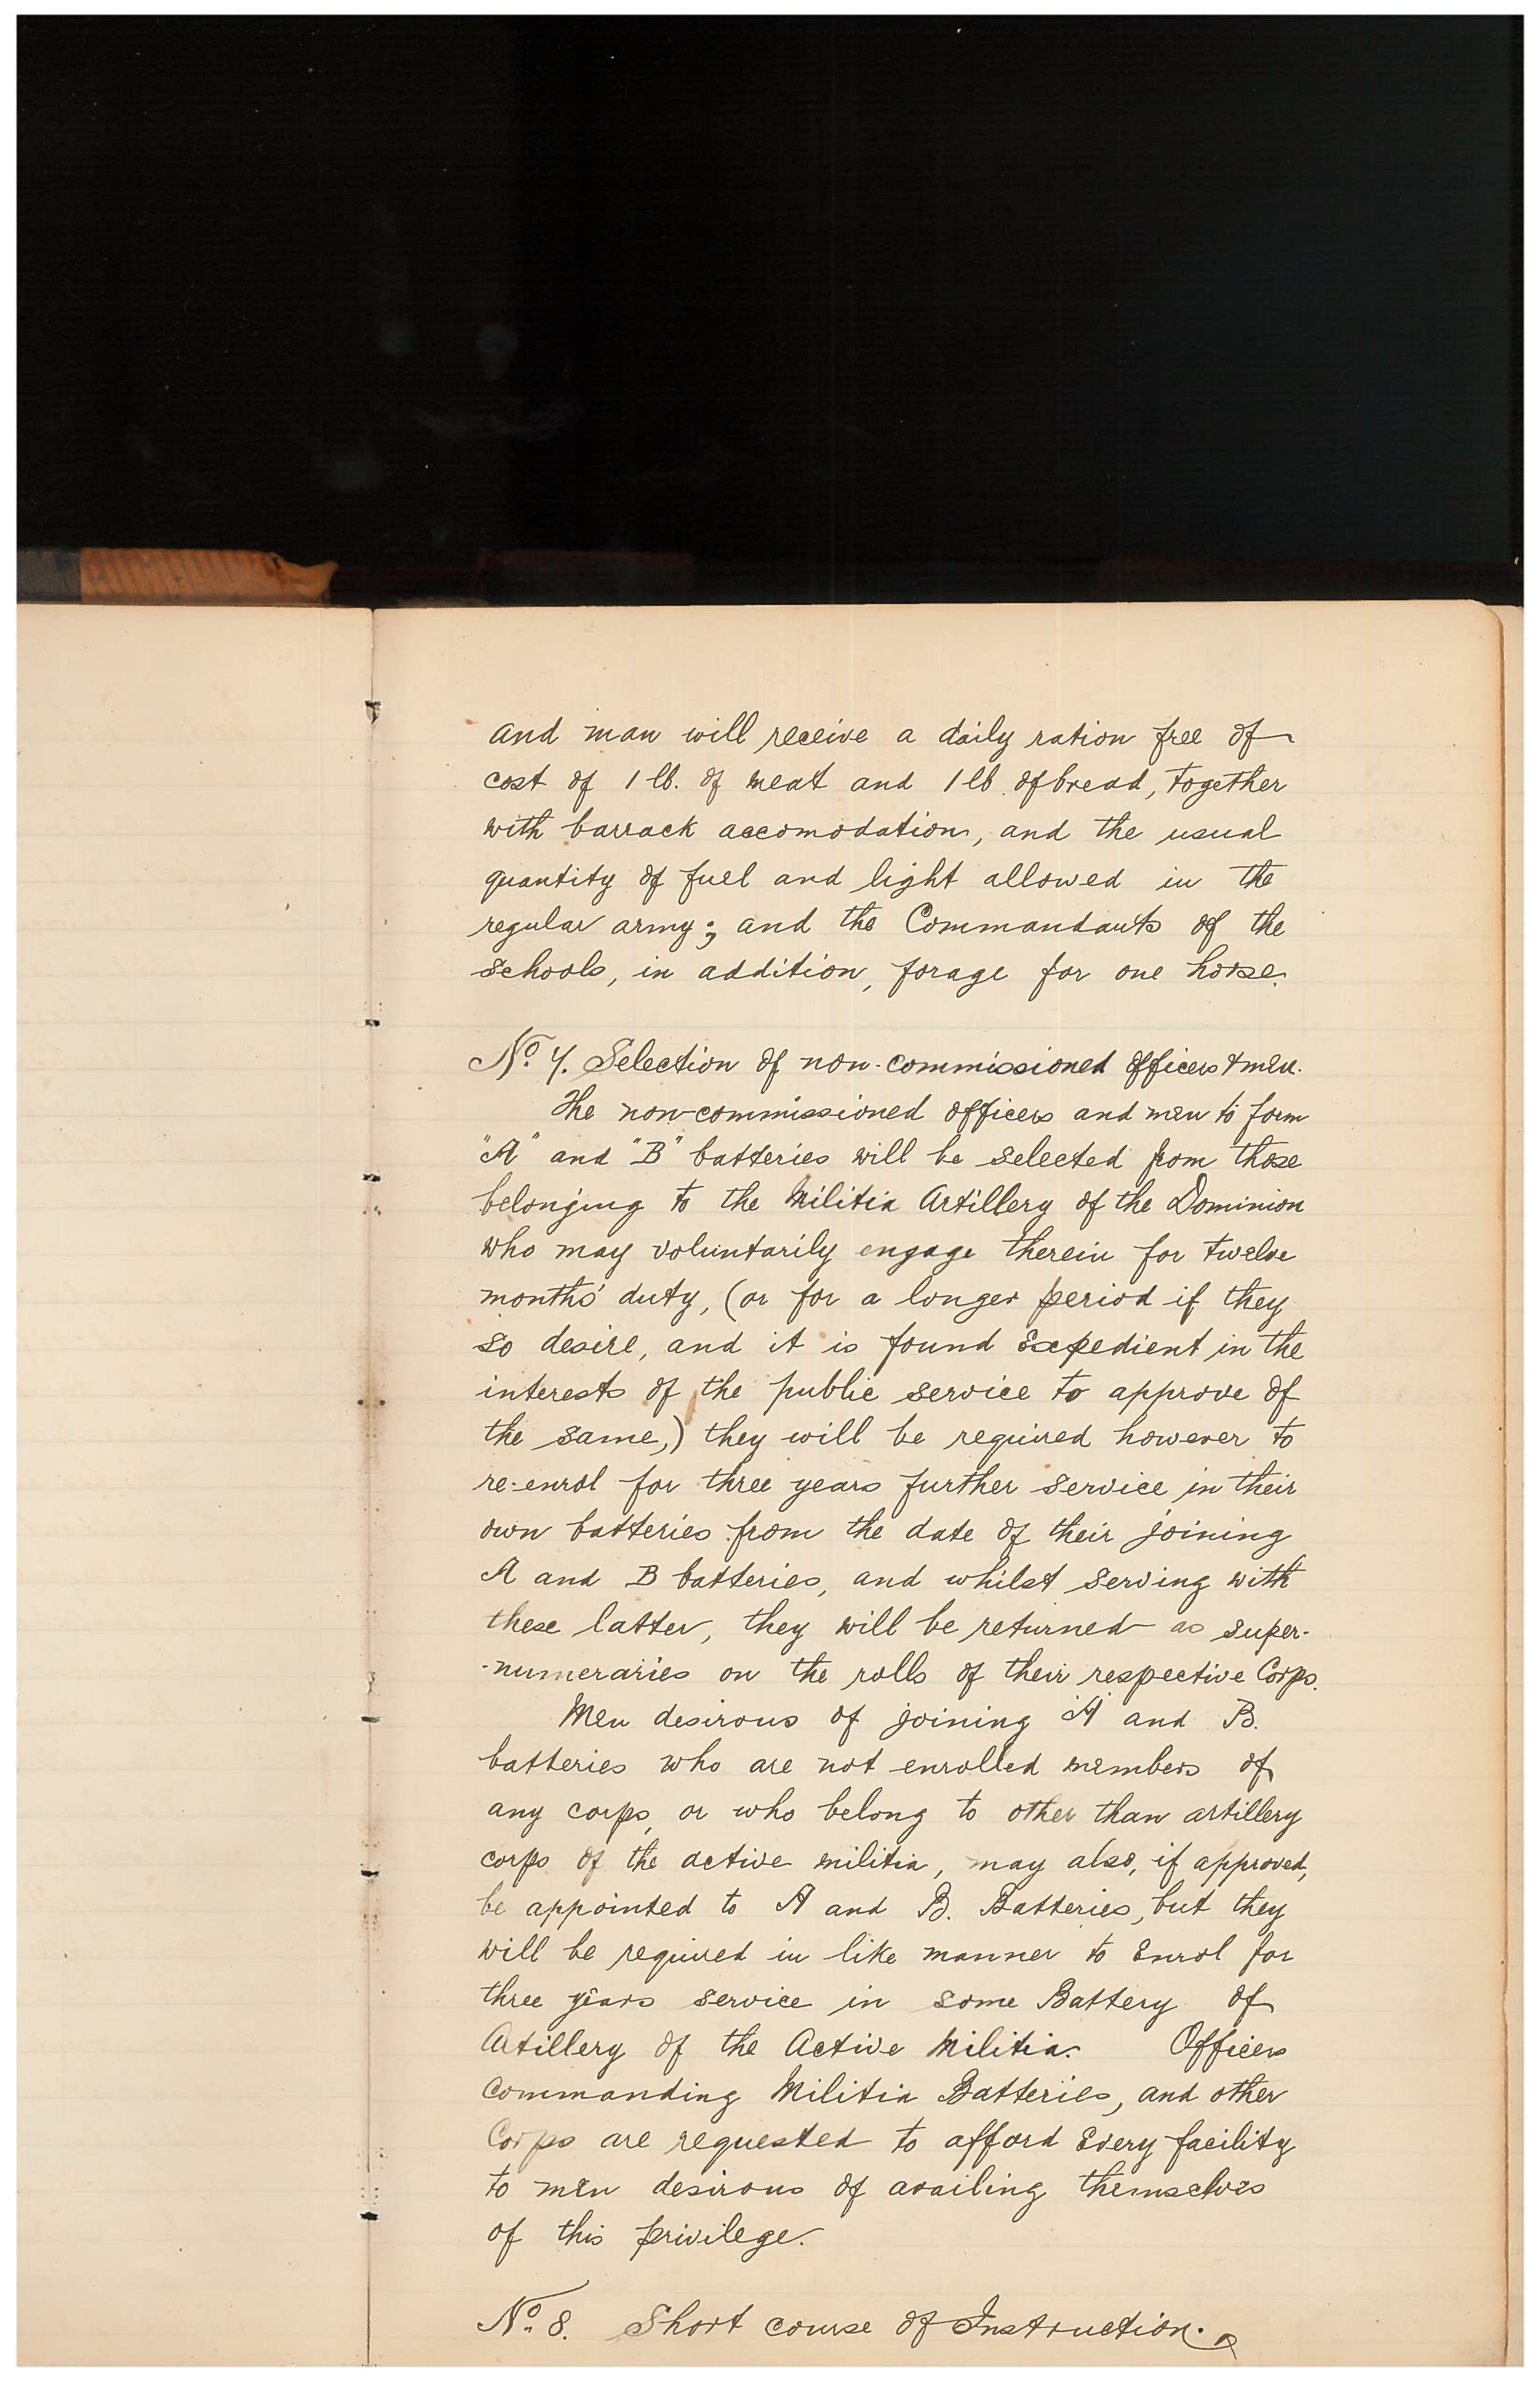 and man will receive a daily ration free of
cost of 1 lb. of meat and 1 lb of bread, together
with barrack accomodation, and the usual
quantity of fuel and light allowed in the
regular army; and the Commandants of the
schools, in addition, forage for one horse.
No. 7. Selection of non-commissioned officers & men.
The non-commissioned officers and men to form
"A" and "B" batteries will be selected from those
belonging to the Militia Artillery of the Dominion
who may voluntarily engage therein for twelve
months' duty, (or for a longer period if they
so desire, and it is found expedient in the
interests of the public service to approve of
the same,) they will be required however to
re-enrol for three years further service in their
own batteries from the date of their joining
A and B batteries, and whilst serving with
these latter, they will be returned as super-
-numeraries on the rolls of their respective Corps.
Men desirous of joining "A" and B.
batteries who are not enrolled members of
any corps, or who belong to other than artillery
corps of the active militia, may also, if approved,
be appointed to A and B. Batteries, but they
will be required in like manner to enrol for
three years service in some Battery of
Artillery of the Active Militia. Officers
commanding Militia Batteries, and other
Corps are requested to afford every facility
to men desirous of availing themselves
of this privilege.
No. 8. Short course of Instruction.